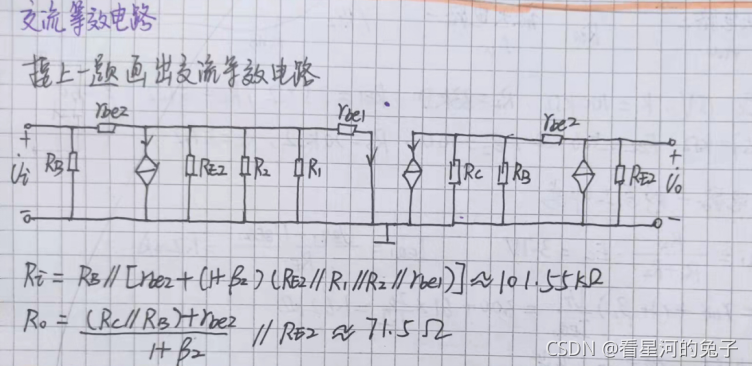 交流等效电路
接上一题画出交流等效电路
rbe2 rbe1 rbe2
+ + 
U̇i RB RE2 R2 R1 RC RB RE2 U̇o
- -
Ri = RB // [rbe2 + (1+β2) (RE2 // R1 // R2 // rbe1)] ≈ 101.55kΩ
Ro = (RC // RB) + rbe2 / 1+β2 // RE2 ≈ 71.5 Ω
CSDN @看星河的兔子